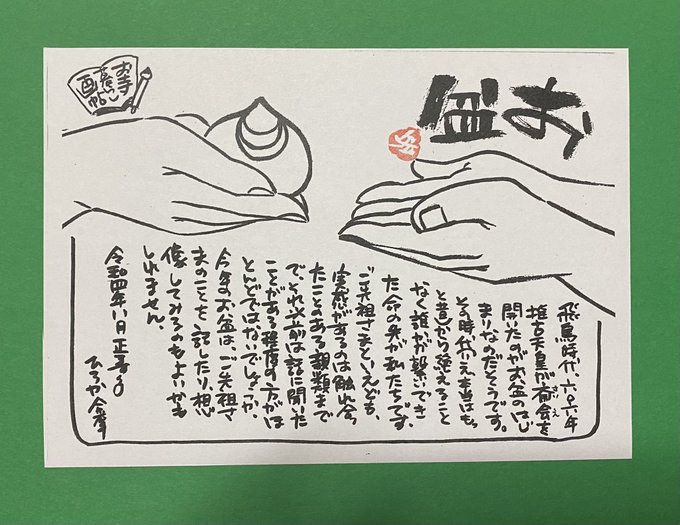 お盆
飛鳥時代、六〇六年
推古天皇が斎会を
さいえ
開いたのがお盆のはじ
まりなのだそうです。
その時代いえ本当はもっ
と昔から絶えること
なく誰かが繋いでき
た命の先が私たちです。
ご先祖さまといえども、
実感があるのは触れ合っ
たことのある親類まで
で、それ以前は話に聞いた
ことがある程度の方がほ
とんどではないでしょうか。
今年のお盆は、ご先祖さ
まのことを話したり、想
像してみるのもよいかも
しれません。
令和四年八月
ひろか合掌
画帖